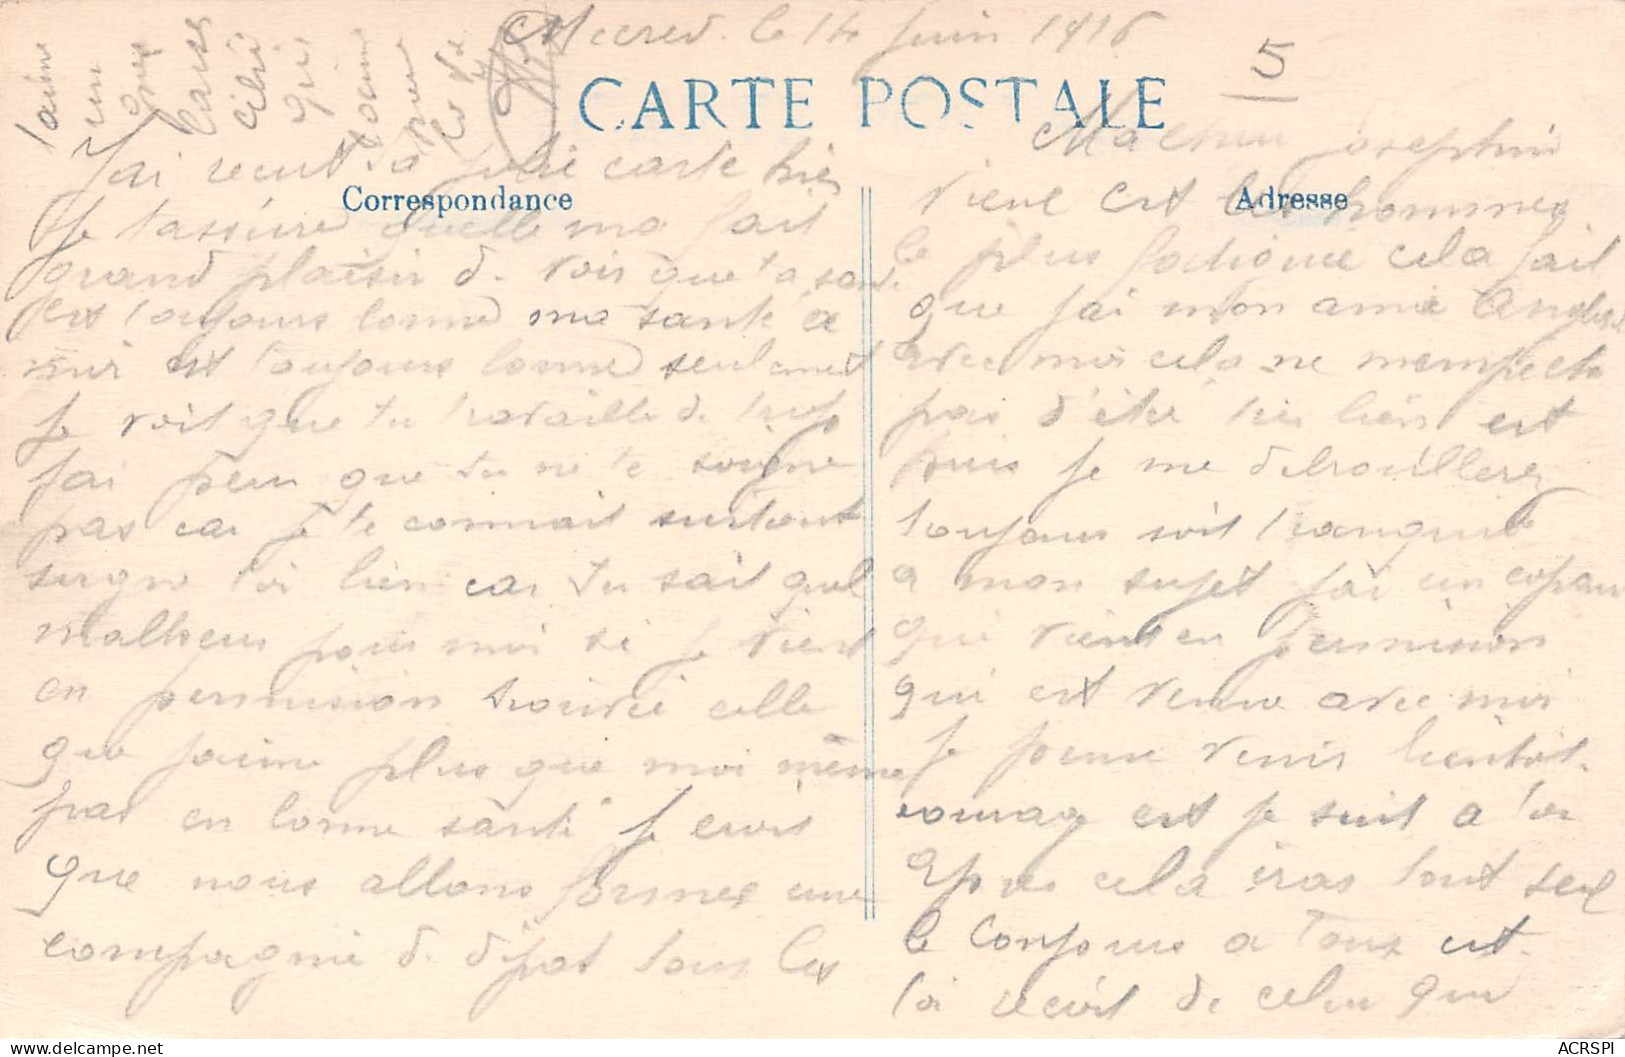 Mercred. le 14 juin 1916
5
CARTE POSTALE
Correspondance
Adresse
J'ai recut ta jolie carte hier
Je tassure quelle ma fait
grand plaisir de voir que ta santé
est toujours bonne ma santé a
moi est toujours bonne seulement
je voit que tu travaille de trop
jai peur que tu ne te soigne
pas car je te connait surtout
soigne toi bien car tu sait quel
malheur pour moi si je vient
en permision trouvée celle
que jaime plus que moi même
pas en bonne santé je crois
que nous allons former une
compagnie de dépot tous les
Ma chère Josephine
vieux est les hommes
le plus fatiguée cela fait
que jai mon amie
avec moi cela ne mempeche
pas d'être très bien est
puis je me debrouillerez
toujours soit tranquille
a mon sujet jai un copain
qui vient en permision
qui est venue avec moi
je pense venir bientot.
courage est je suit a toi
Apres cela iras tout seul
le bonjours a tous est
toi recoit de celui qui
taime
un
gros
baiser
qui
jolie